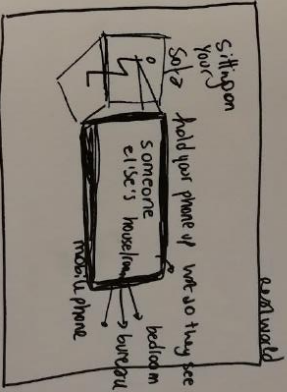 real world
sitting on
your
sofa
hold your phone up
so they see
someone
else's house/room
bedroom
bureau
mobile phone